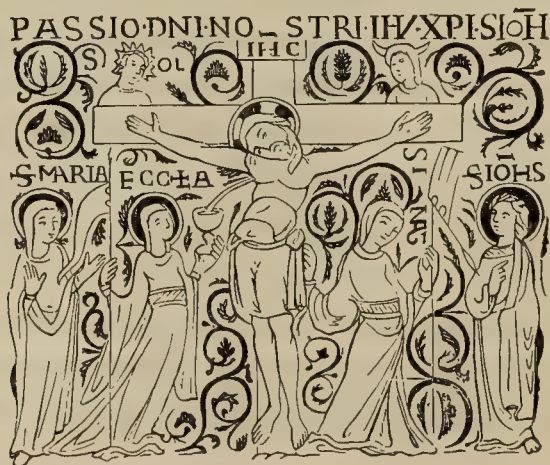 PASSIO·DNI·NO_STRI·IHV·XPI·SIOH̄
IHC
SOL
S MARIA
ECC┼A
SINAG
S IŌHS